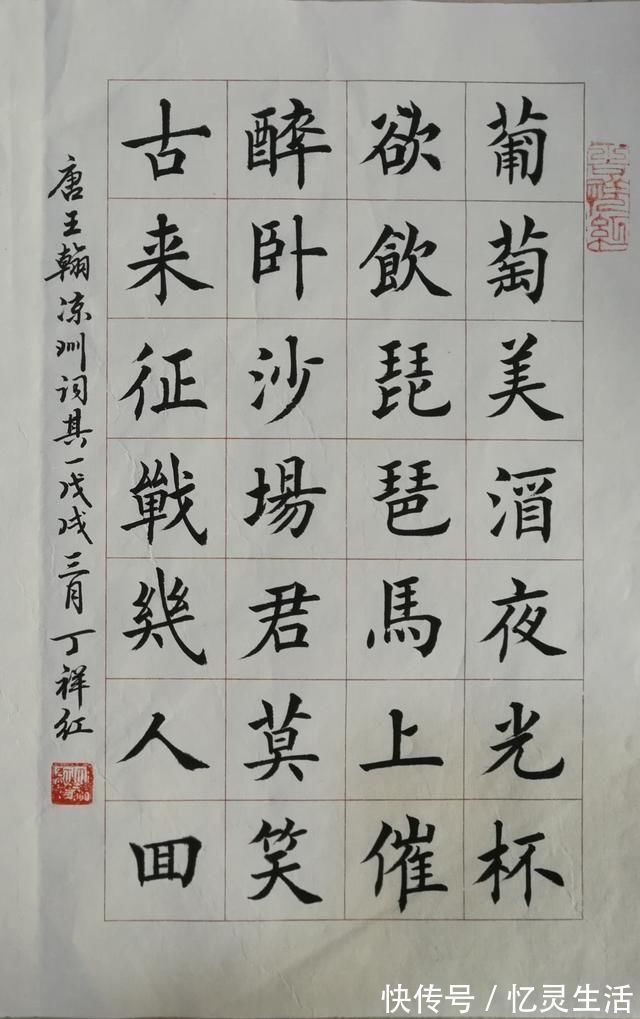 葡萄美酒夜光杯
欲飲琵琶馬上催
醉卧沙場君莫笑
古来征戰幾人囬
唐王翰凉州词其一戊戌三月丁祥红
快传号／忆灵生活